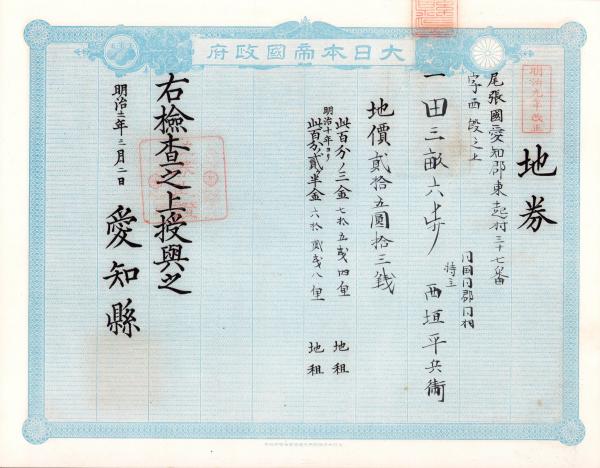 大日本帝國政府
明治九年改正
地券
尾張國愛知郡東起村三十七番
字西證之上
一田三畝六歩
同国同郡同村
持主 西垣平兵衛
地價貳拾五圓拾三銭
此百分ノ三金七拾五銭四厘 地租
明治十年ヨリ
此百分ノ貳ヶ半金六拾貳銭八厘 地租
右檢査之上授與之
明治十二年三月二日
愛知縣